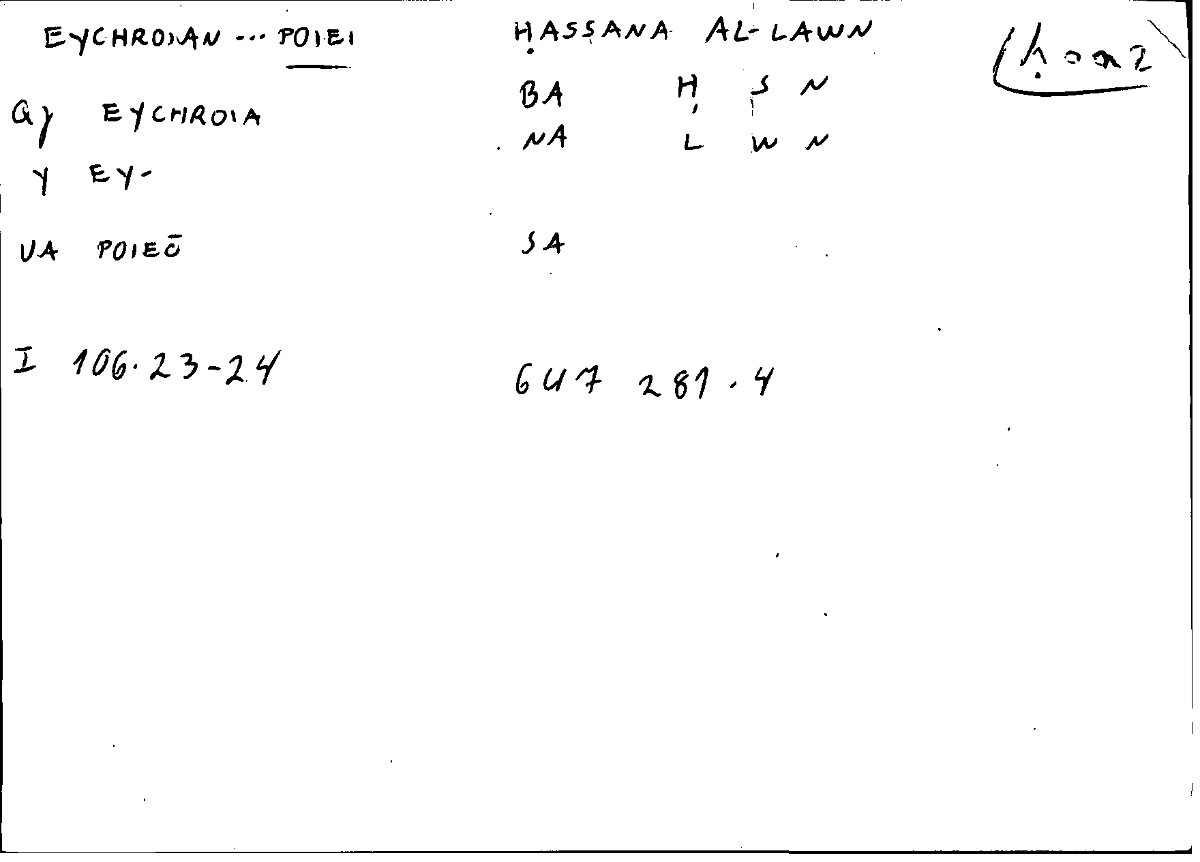 EYCHROIAN ... POIEI ḤASSANA AL-LAWN
QY EYCHROIA BA Ḥ S N
NA L W N
Y EY-
VA POIEŌ SA
I 106.23-24 647 281.4